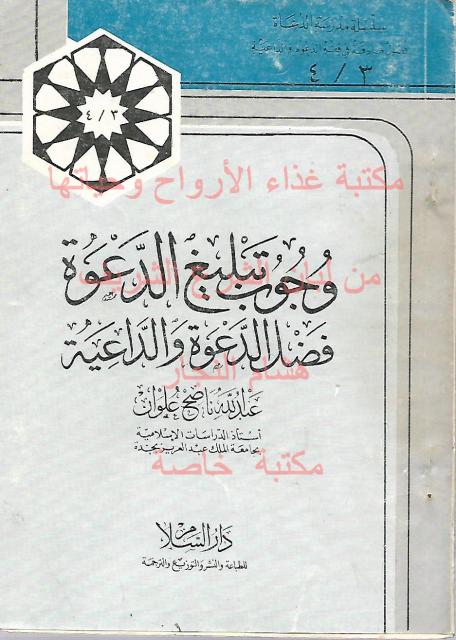 سلسلة مدرسة الدعاة
فصول هادفة في فقه الدعوة والداعية
٣ / ٤
٣ / ٤
مكتبة غذاء الأرواح وحياتها
وُجُوبُ تَبْليغ الدَّعْوَة
من لباب الشرع الشريف
فَضْل الدَّعْوَة وَالدَّاعِيَة
هشام النجار
عبد الله ناصح علوان
أستاذ الدراسات الإسلامية
بجامعة الملك عبد العزيز بجدة
مكتبة خاصة
دار السلام
للطباعة والنشر والتوزيع والترجمة